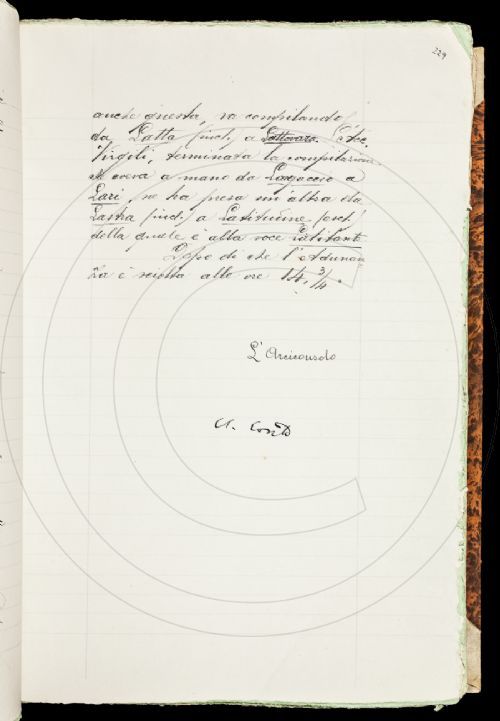 229
anche questa, va compilando
da Latta (incl.) a Lattovaro. L'Acc.
Virgili, terminata la compilazione
che aveva a mano da Largaccio a
Lari, ne ha presa un'altra da
Lastra (incl.) a Latitudine (escl.)
della quale è alla voce Latitante.
Dopo di che l'Adunan
za è sciolta alle ore 14, 3/4.
L'Arciconsolo
A. Conti